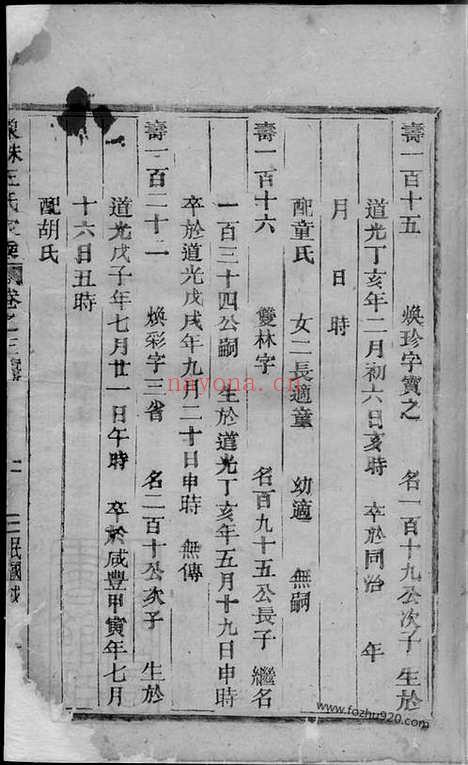 壽一百十五 煥珍字寶之 名一百十九公次子 生於
道光丁亥年二月初六日亥時 卒於同治 年
月 日 時
配童氏 女二長適童 幼適 無嗣
壽一百十六 雙林字 名百九十五公長子 繼名
一百三十四公嗣 生於道光丁亥年五月十九日申時
卒於道光戊戌年九月二十日申時 無傳
壽一百二十二 煥彩字三省 名二百十公次子 生於
道光戊子年七月廿一日午時 卒於咸豐甲寅年七月
十六日丑時
配胡氏
王氏 卷之三 民國
nayona.cn
www.fozhu920.com